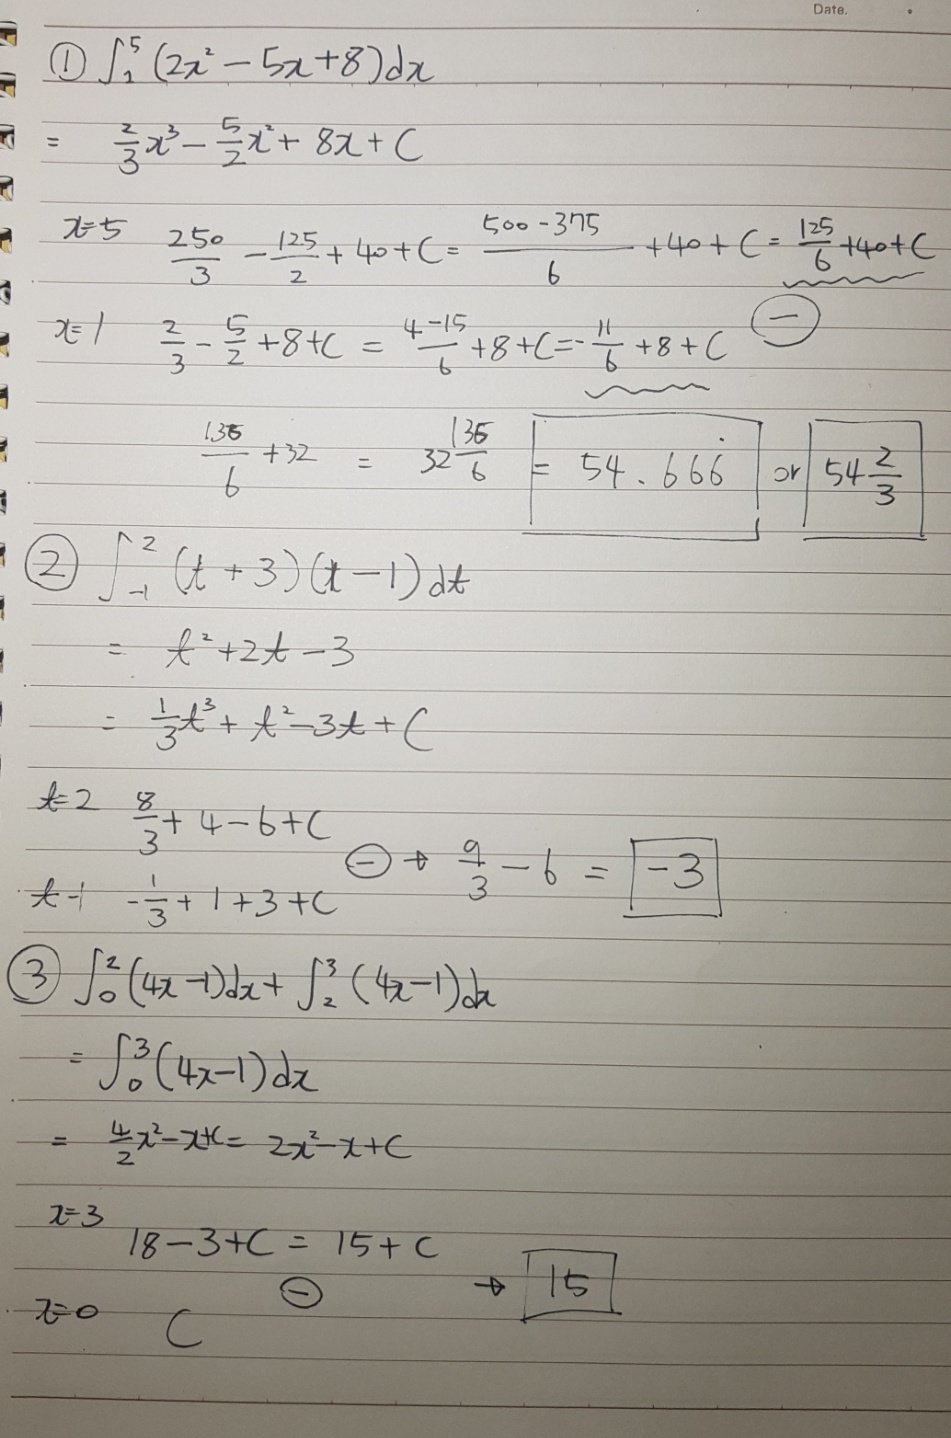 Date.
① ∫₁⁵ (2x² − 5x + 8) dx
= 2/3 x³ − 5/2 x² + 8x + C
x=5 250/3 − 125/2 + 40 + C = (500 − 375)/6 + 40 + C = 125/6 + 40 + C
x=1 2/3 − 5/2 + 8 + C = (4 − 15)/6 + 8 + C = −11/6 + 8 + C ⊖
136/6 + 32 = 32 136/6 = 54.666̇ or 54 2/3
② ∫₋₁² (t + 3)(t − 1) dt
= t² + 2t − 3
= 1/3 t³ + t² − 3t + C
t=2 8/3 + 4 − 6 + C
⊖ → 9/3 − 6 = −3
t−1 −1/3 + 1 + 3 + C
③ ∫₀² (4x − 1) dx + ∫₂³ (4x − 1) dx
= ∫₀³ (4x − 1) dx
= 4/2 x² − x + C = 2x² − x + C
x=3 18 − 3 + C = 15 + C
⊖ → 15
x=0 C